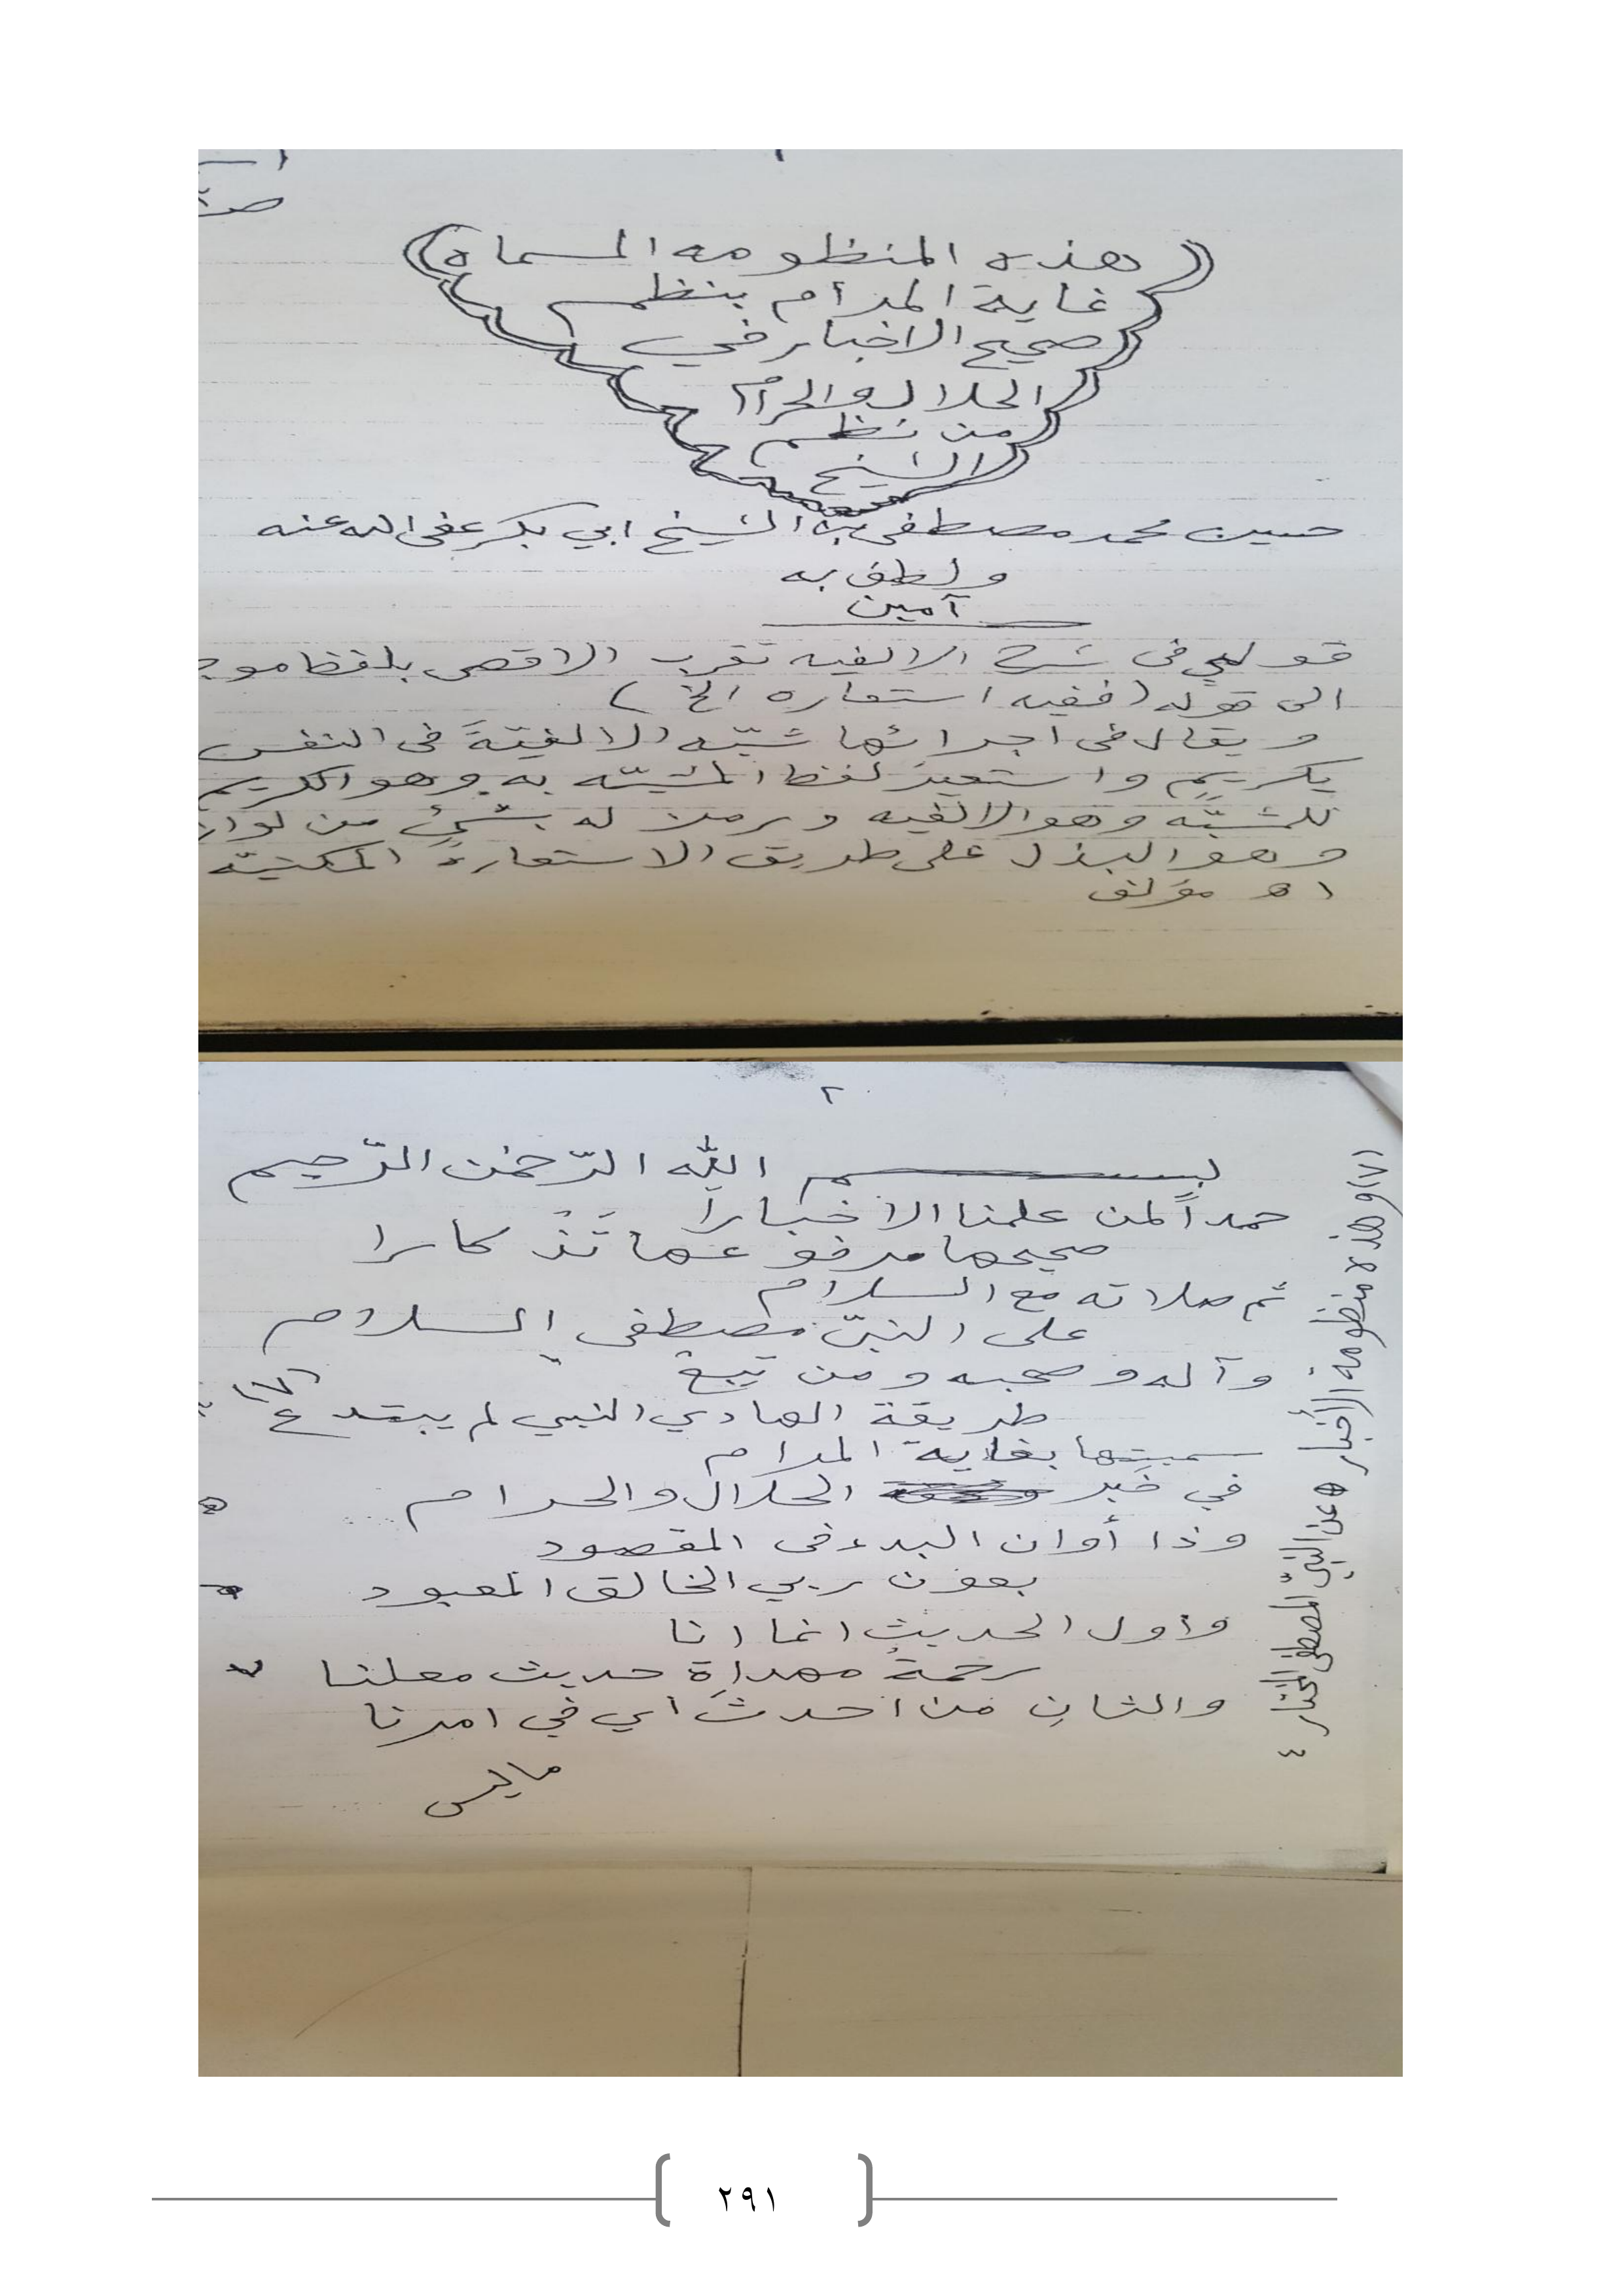 هذه المنظومه المسماه
غاية المرأم بنظم
صحيح الاخبار في
الحلال والحرأم
من نظم
الشيخ
حسين محمد مصطفى بن الشيخ ابي بكر عفى الله عنه
ولطف به
آمين
قولي فى شرح الالفيه تقرب الاقصى بلفظ موجـ
الى قوله (ففيه استعاره الخ)
ويقال فى اجرائها شبّه الالفيّة فى النفس
بكريمٍ واستعير لفظ المشبّه به وهو الكريم
للمشبّه وهو الالفيه ورمز له بشئٍ من لواز
وهو البذل على طريق الاستعارة المكنيّه
اه مؤلف
٢
بسم الله الرّحمٰن الرّحيم
حمداً لمن علمنا الاخبارا
صحيحها مرفوعها تَذكارا
ثم صلاته مع السلام
على النبيّ مصطفى السلام
وآله وصحبه ومن تبع
طريقة الهادي النبي لم يبتدع (٧)
سميتها بغاية المرام
في خبر الحلال والحرام
وذا أوان البدء فى المقصود
بعون ربي الخالق المعبود
واول الحديث انما انا
رحمةٌ مهداة حديث معلنا
والثانِ من احدث اي في امرنا
ماليس
(٧) وهذه منظومه الأخبار ه عن النبيّ المصطفى المختار ٤
٢٩١